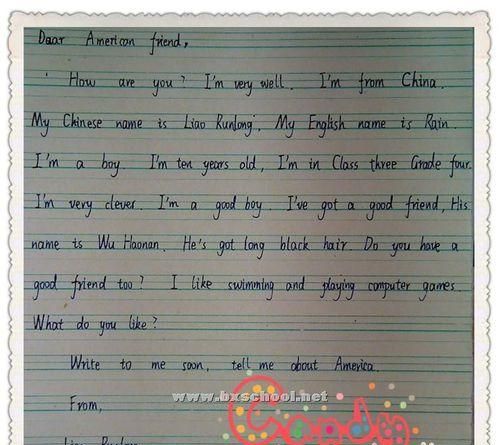 Dear American friend,
How are you? I'm very well. I'm from China.
My Chinese name is Liao Runlong. My English name is Rain.
I'm a boy. I'm ten years old, I'm in Class three Grade four.
I'm very clever. I'm a good boy. I've got a good friend, His
name is Wu Haonan. He's got long black hair. Do you have a
good friend too? I like swimming and playing computer games.
What do you like?
Write to me soon, tell me about America.
www.bxschool.net
From,
Candy
Liao Runlong